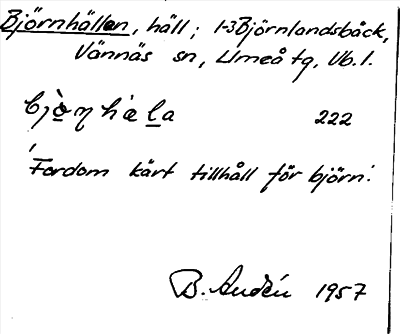 Björnhällen, häll; 1-3 Björnlandsbäck,
Vännäs sn, Umeå tg, Vb.l.
222
'Fordom kärt tillhåll för björn.'
B. Audén 1957